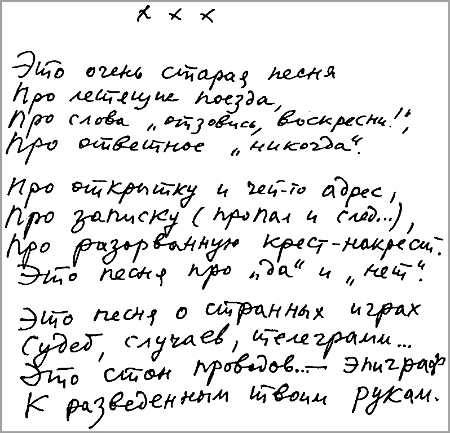 х х х
Это очень старая песня
Про летящие поезда,
Про слова „отзовись, воскресни!“,
Про ответное „никогда“.
Про открытку и чей-то адрес,
Про записку (пропал и след...),
Про разорванную крест-накрест.
Это песня про „да“ и „нет“.
Это песня о странных играх
Судеб, случаев, телеграмм...
Это стон проводов... — эпиграф
К разведенным твоим рукам.